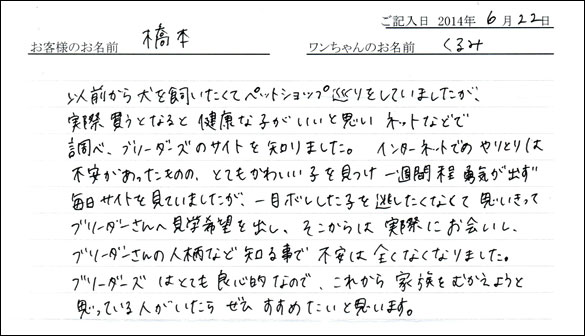 ご記入日 2014年 6月 22日
お客様のお名前 橋本 ワンちゃんのお名前 くるみ
以前から犬を飼いたくてペットショップ巡りをしていましたが、
実際買うとなると健康な子がいいと思い ネットなどで
調べ、ブリーダーズのサイトを知りました。 インターネットでのやりとりは
不安があったものの、とてもかわいい子を見つけ 一週間程 勇気が出ず
毎日サイトを見ていましたが、一目ボレした子を逃したくなくて 思いきって
ブリーダーさんへ見学希望を出し、そこからは 実際にお会いし、
ブリーダーさんの人柄など知る事で 不安は全くなくなりました。
ブリーダーズ はとても良心的なので、これから 家族をむかえようと
思っている人がいたら ぜひ すすめたいと思います。